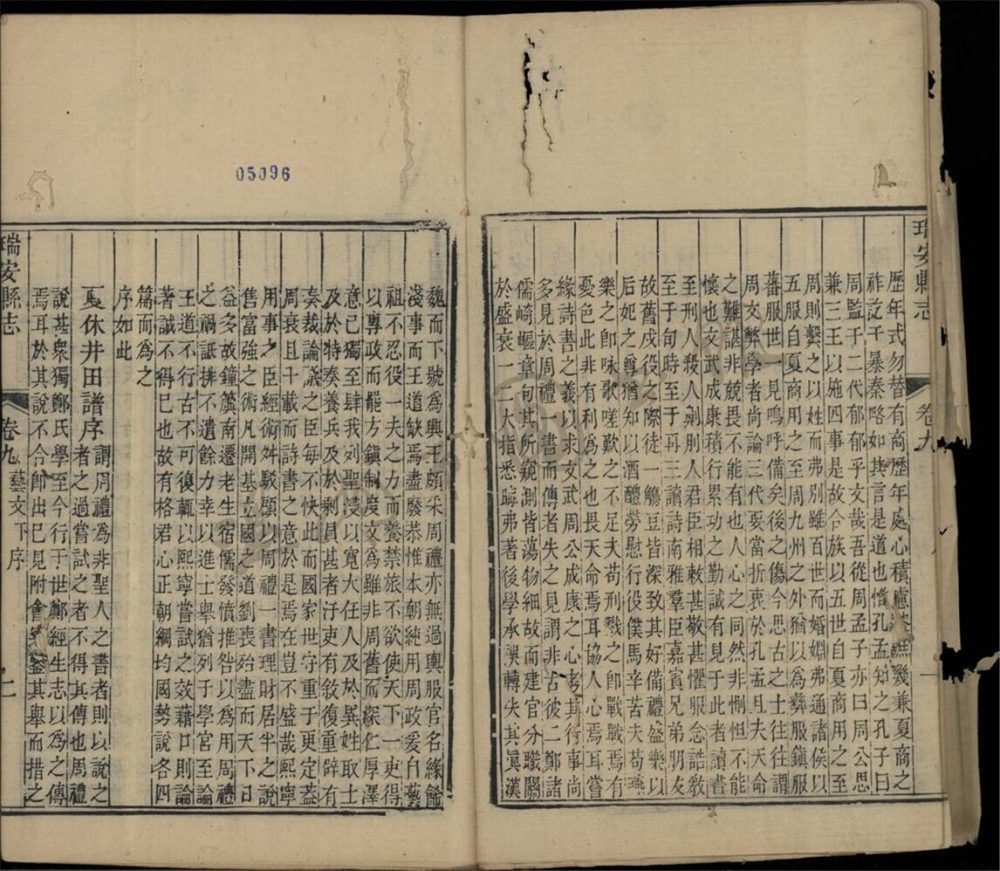 瑞安縣志
卷九
歷年式勿替有商歷年處心積慮譙幾兼夏商之
祚訖于暴秦略如其言是道也惟孔孟知之孔子曰
周監于二代郁郁乎文哉吾從周孟子亦曰周公思
兼三王以施四事是故合族以五世自夏商用之至
周則繫之以姓而弗別雖百世而婚姻弗通諸侯以
五服自夏商用之至周九州之外猶以為彝服鎮服
蕃服世一見嗚呼備矣後之傷今思古之士往往謂
周文弊學者尚論三代要當折衷於孔孟且夫天命
之難諶非兢畏不能有也人心之同然非惻怛不能
懷也文武成康積行累功之勤誠有見于此者讀書
至刑人殺人劓刵人君臣相敕甚敬甚懼服念誥敎
至于旬時至于再三讀詩南雅羣臣嘉賓兄弟朋友
故舊戍役之際徒一觴豆皆深致其好備禮盛樂以
后妃之尊猶知以酒醴勞慰行役僕馬辛苦夫苟燕
樂之即咏歌嗟歎之不足夫苟刑之即戰戰焉有
憂色此非有利為之也畏天命焉耳協人心焉耳嘗
緣詩書之義以求文武周公成康之心考其行事尚
多見於周禮一書而傳者失之見謂非古彼二鄭諸
儒崎嶇章句其所窺測皆薄物細故而建官分職關
於盛衰一二大指悉晦弗著後學承誤轉失其眞漢
05096
魏而下號為興王頗采周禮亦無過輿服官名緣飾
淺事而王道缺焉盡廢恭惟本朝純用周政爰自藝
祖不忍役一夫之力而養禁旅不欲使天下一吏得
以專政而罷方鎮制度文為雖非周舊而深仁厚澤
意已獨至肆我列聖浸以寬大任人及於異姓取士
及於特奏養兵及於剩員甚者汙吏不得敘復重辟有
奏裁論議之臣每不快此而國家世守重于更定葢
周衰且千載而詩書之意於是焉在豈不盛哉熙寧
用事之臣經術舛駁顧以周禮一書理財居半之說
售富強之術凡開基立國之道斲喪殆盡而天下日
益多故鐘簴南遷老生宿儒發憤推咎以為用周禮
之禍詆排不遺餘力幸以進士舉猶列于學宮至論
王道不行古不可復輒以熙寧嘗試之效藉口則論
著誠不得已也故有格君心正朝綱均國勢說各四
篇而為之
序如此
夏休井田譜序
謂周禮為非聖人之書者則以說之
說甚衆獨鄭氏學至今行于世鄭經生志以為之傳
焉耳於其說不合即出已見附會
瑞安縣志
卷九
藝文下序